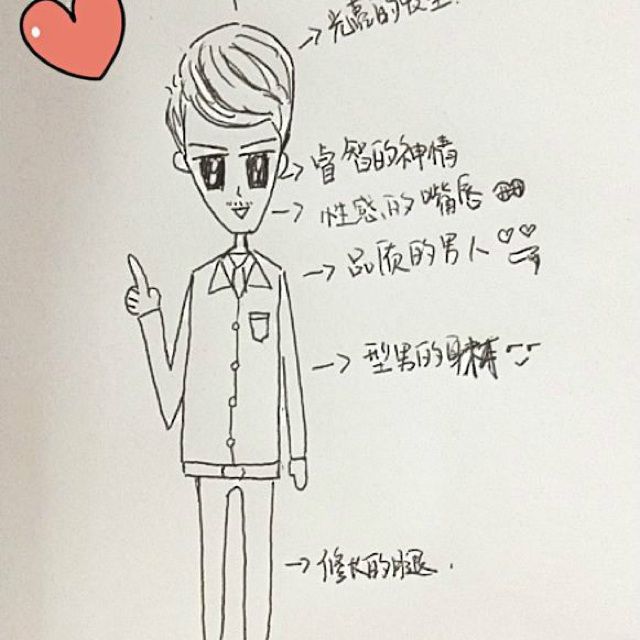 的发型
睿智的神情
性感的嘴唇
品质的男人
型男的身材
修长的腿.